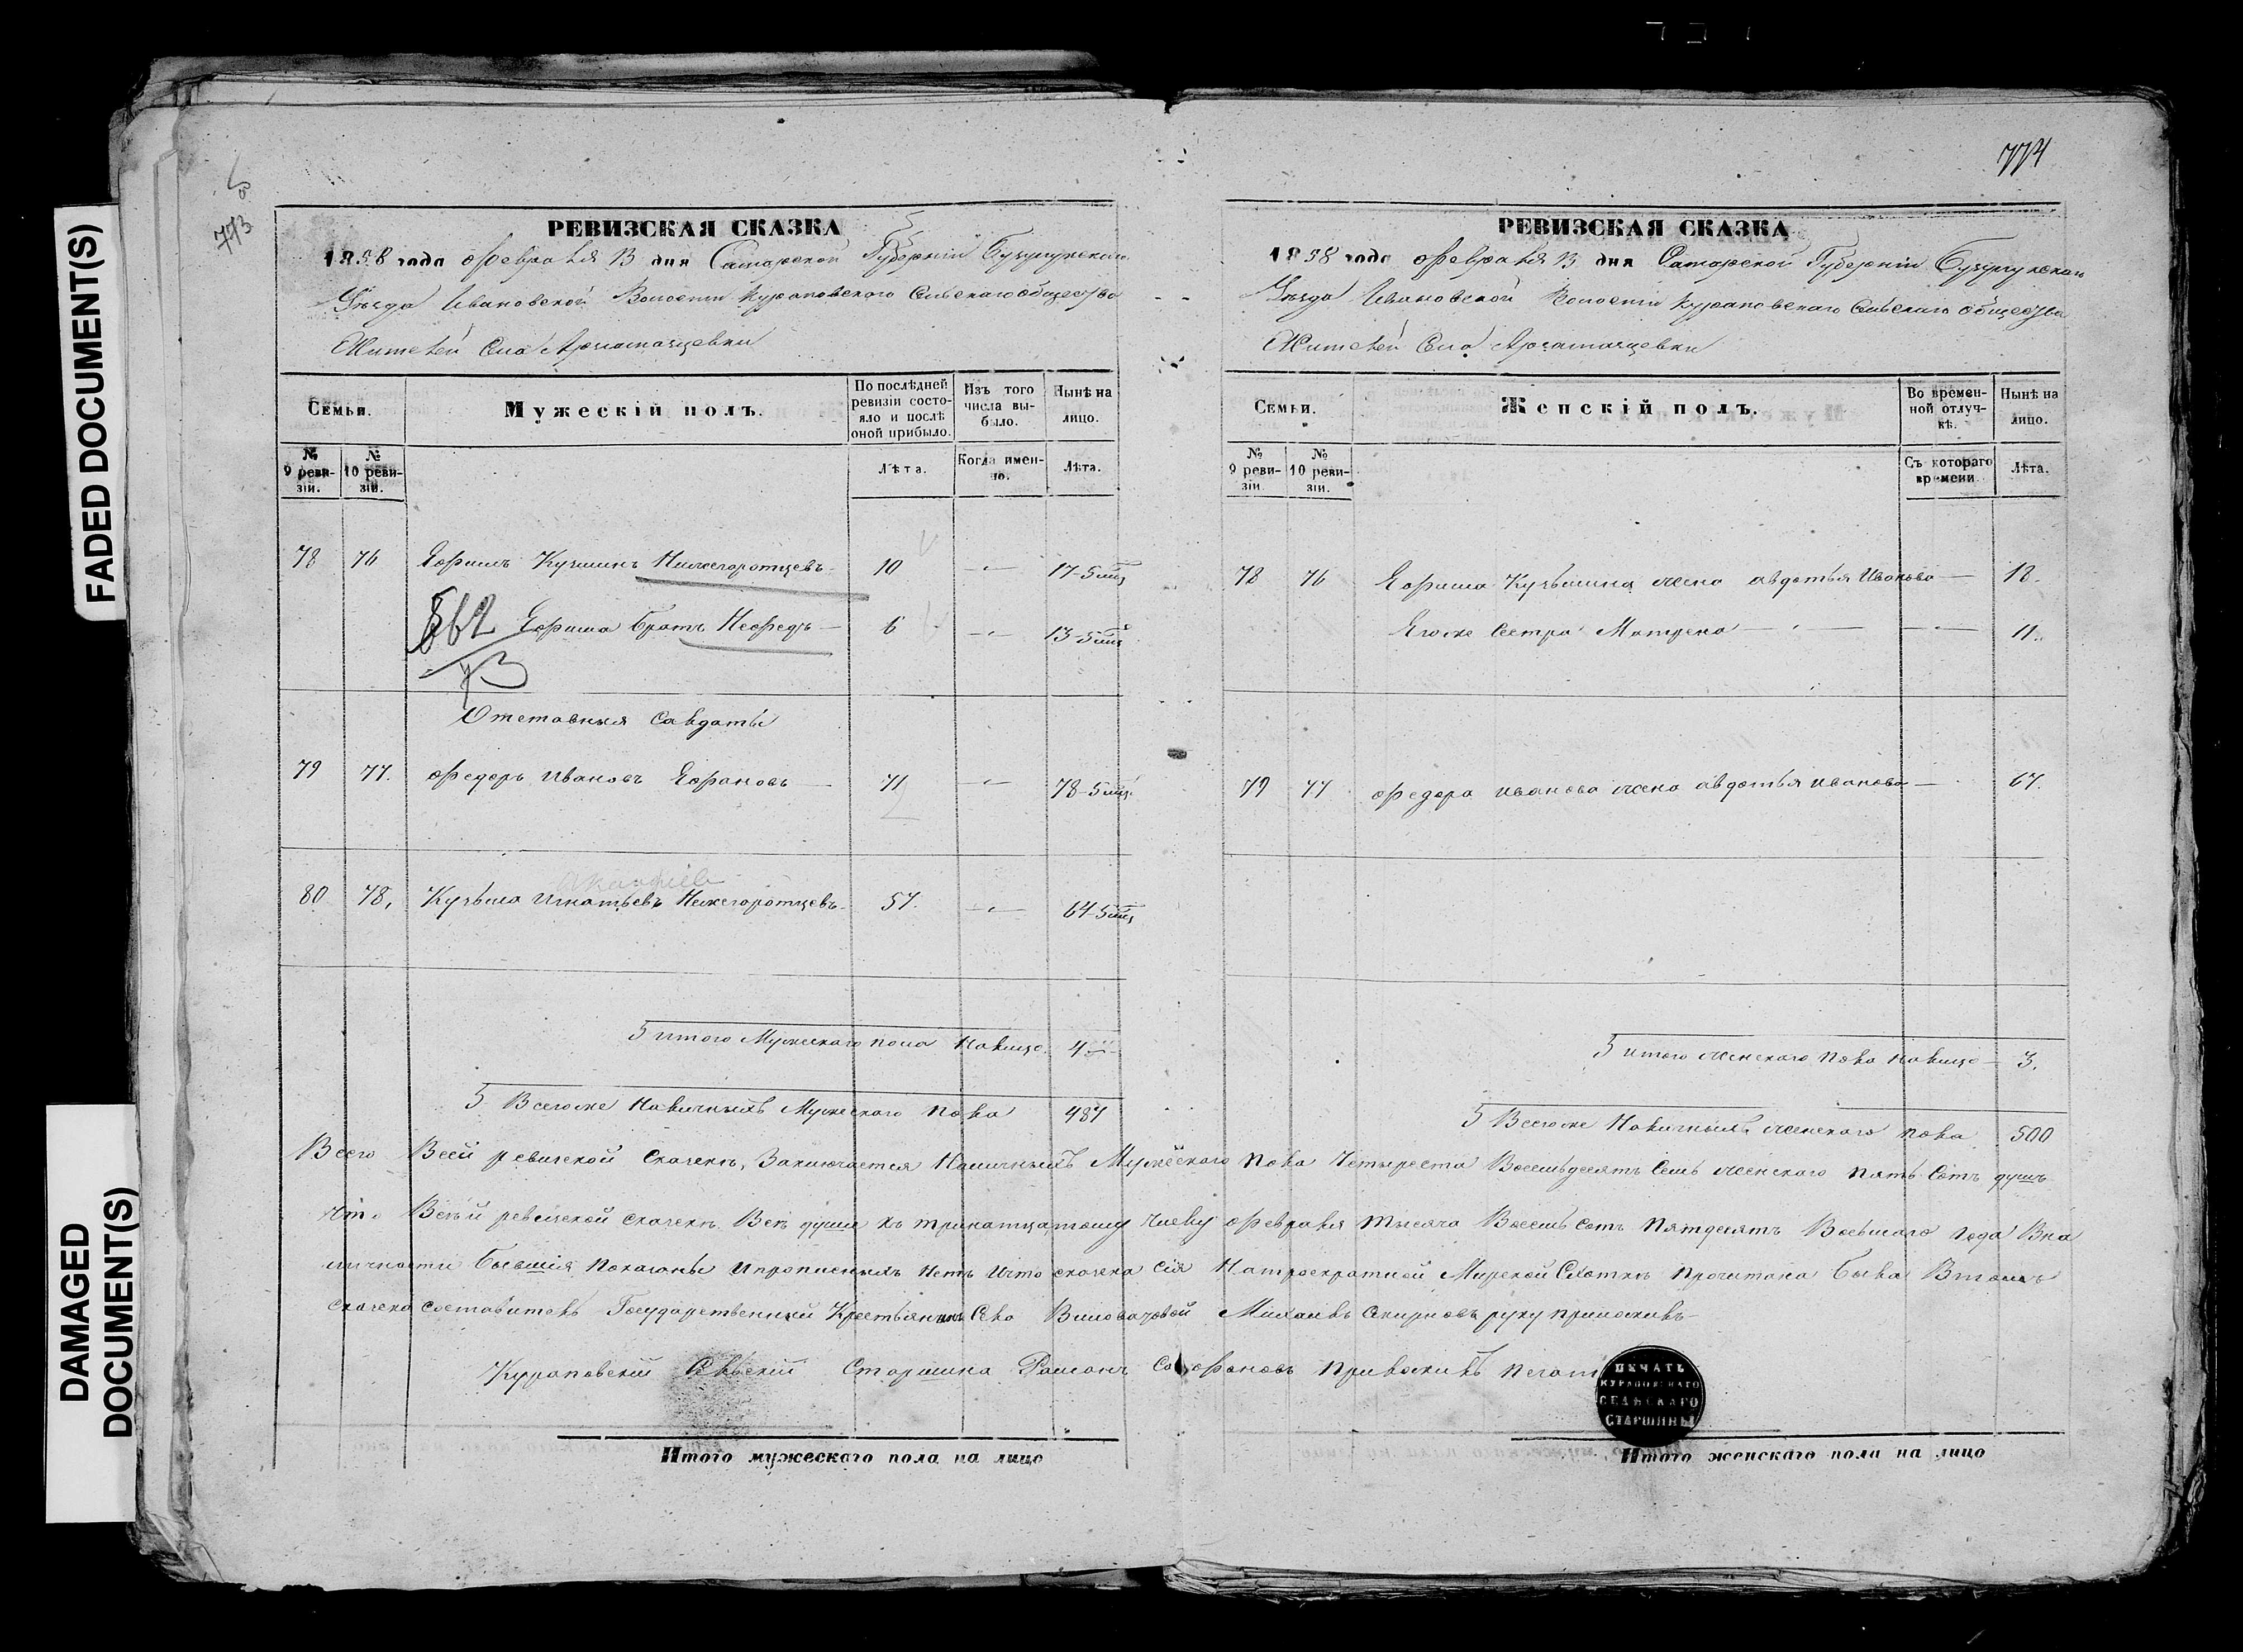 774
773
FADED DOCUMENT(S)
DAMAGED DOCUMENT(S)
РЕВИЗСКАЯ СКАЗКА
1858 года февраля 13 дня Самарской Губерніи Бузулукскаго
Уѣзда Ивановской Волости Кураповскаго Сельскаго общества
Жителей Села
Семьи.
Мужескій полъ.
По послѣдней ревизіи состояло и послѣ оной прибыло.
Изъ того числа выбыло.
Нынѣ на лицо.
№ 9 ревизіи.
№ 10 ревизіи.
Лѣта.
Когда именно.
Лѣта.
78 76 Ефимъ Кузминъ Нижегоротцевъ 10 17-5 мцъ
562 Ефима братъ Нефедъ 6 13-5 мцъ
73
Отставныя Салдаты
79 77. Федоръ Ивановъ 71 78-5 мцъ
80 78. Кузьма Игнатьевъ Нижегоротцевъ 57. 64-5 мцъ
Итого Мужескаго пола налицо 4
Всегоже Наличныхъ Мужескаго пола 487
РЕВИЗСКАЯ СКАЗКА
1858 года февраля 13 дня Самарской Губерніи Бузулукскаго
Уѣзда Ивановской Волости Кураповскаго Сельскаго общества
Жителей Села
Семьи.
Женскій полъ.
Во временной отлучкѣ.
Нынѣ на лицо.
№ 9 ревизіи.
№ 10 ревизіи.
Съ котораго времени
Лѣта.
78 76 Ефима Кузьмина жена авдотья Иванова 18.
Егоже Сестра Матрена 11.
79 77 Федора Иванова жена авдотья иванова 67.
Итого женскаго пола налицо 3.
Всегоже Наличныхъ женскаго пола 500
Всего Всей ревизской сказкѣ, Заключается Наличныхъ Мужескаго пола Четыреста Восемьдесятъ Семь женскаго пять Сотъ душъ
что Всей ревизской сказкѣ Всѣ души къ тринатцатому числу февраля тысяча Восемь сотъ пятдесятъ Восьмаго года Вна
личности бывшія показаны ипрописныхъ нетъ ичто сказка сія Натроекратной Мирской Сходкѣ прочитана была Втомъ
сказке составитель Государственный Крестьянинъ Села Михаилъ руку приложилъ
Кураповскій Сельскій Старшина Романъ приложилъ печать
ПЕЧАТЬ
КУРАПОВСКАГО
СЕЛЬСКАГО
СТАРШИНЫ
Итого мужескаго пола на лицо
Итого женскаго пола на лицо